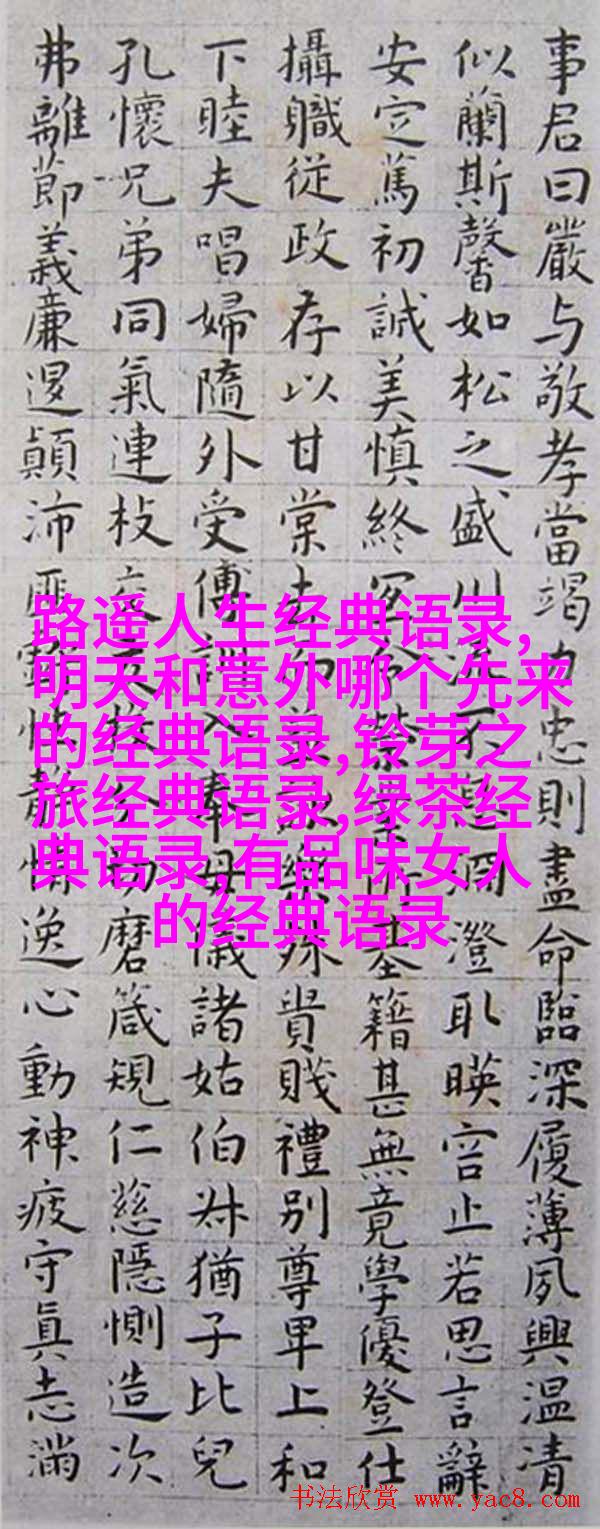 事君曰嚴与敬孝當竭力忠則盡命臨深履薄夙興温清
似蘭斯馨如松之盛川流不息淵澄取暎容止若思言辭
安定篤初誠美慎終宜令榮業所基籍甚無竟學優登仕
攝職從政存以甘棠去而益詠樂殊貴賤禮別尊卑上和
下睦夫唱婦隨外受傅訓入奉母儀諸姑伯叔猶子比兒
孔懷兄弟同氣連枝交友投分切磨箴規仁慈隱惻造次
弗離節義廉退顛沛匪虧性靜情逸心動神疲守真志滿
路遥人生经典语录,
明天和意外哪个先来
的经典语录,铃芽之
旅经典语录,绿茶经
典语录,有品味女人
的经典语录
书法欣赏 www.yac8.com